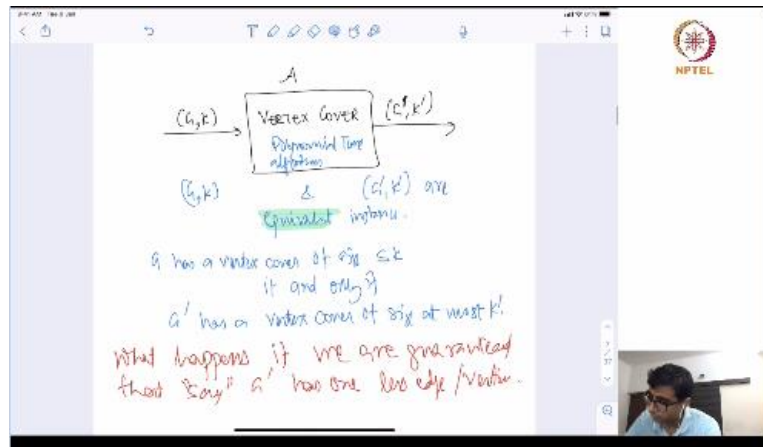 NPTEL
A
(G,K)
VERTEX COVER
(G',K')
Polynomial Time
algorithm
(G,K) & (G',K') are
Equivalent instance.
G has a vertex cover of size ≤K
if and only if
G' has a vertex cover of size at most K'.
What happens if we are guaranteed
that "say" G' has one less edge/vertex.